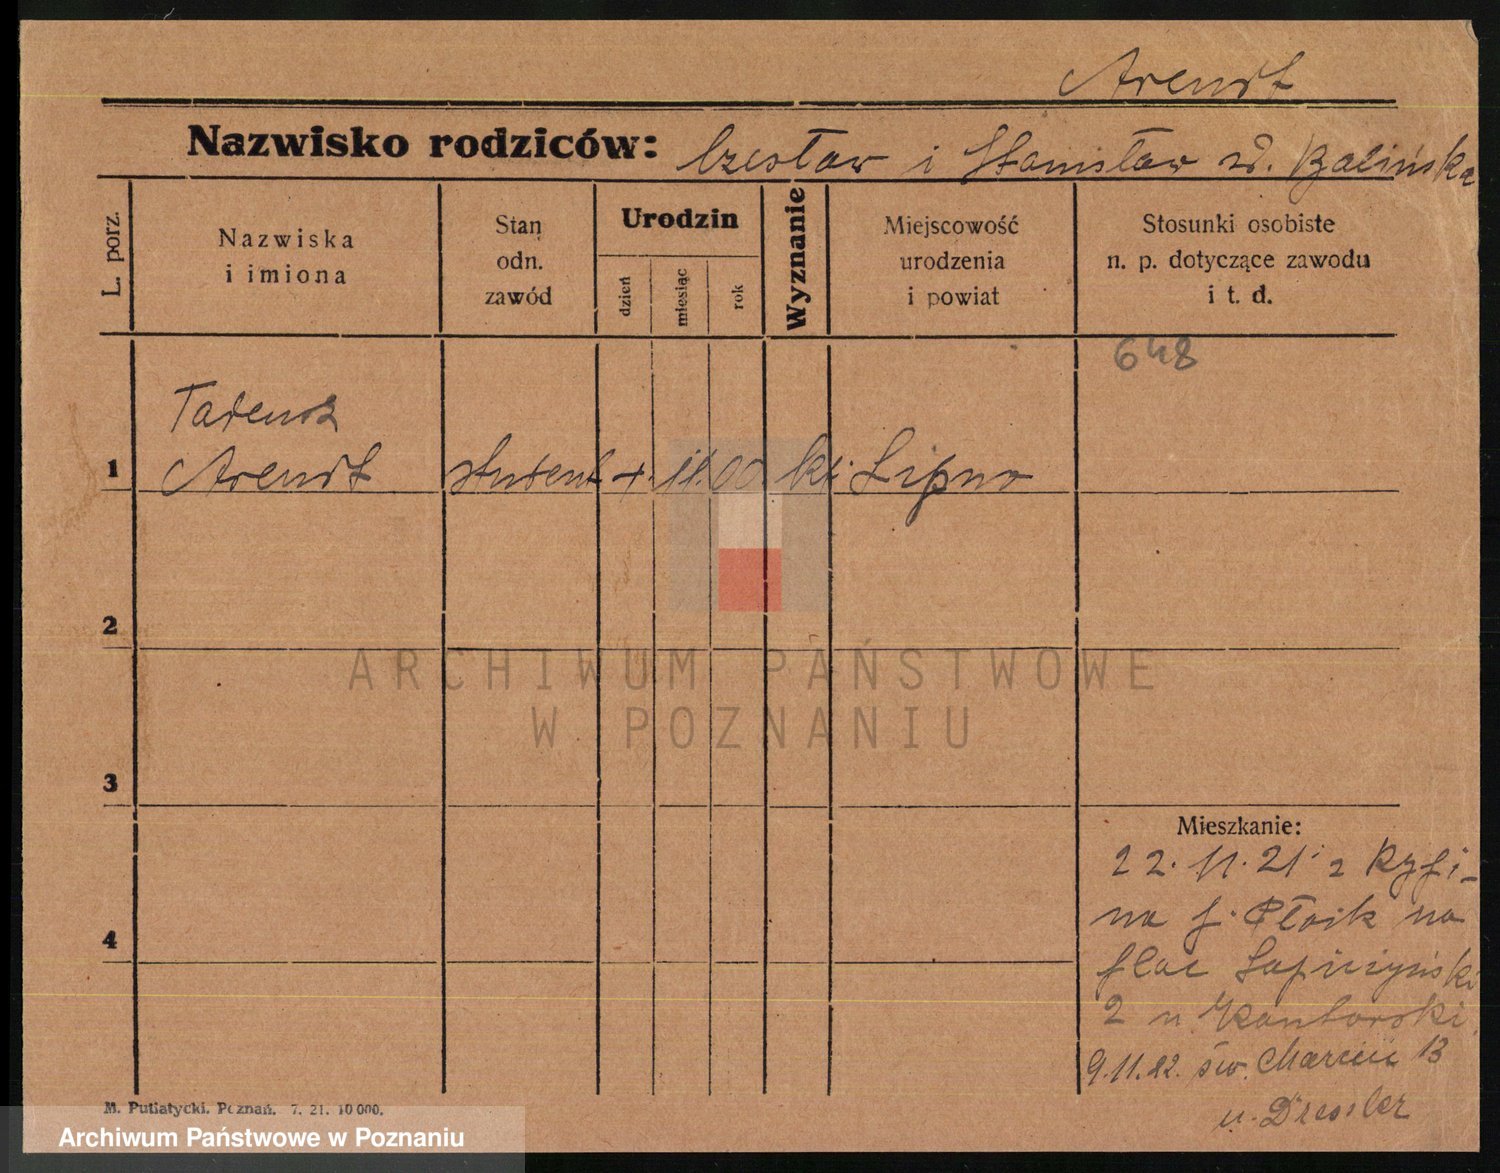 Arendt
Nazwisko rodziców: Czesław i Stanisław z d. Balińska
L. porz.
Nazwiska
i imiona
Stan
odn.
zawód
Urodzin
dzień
miesiąc
rok
Wyznanie
Miejscowość
urodzenia
i powiat
Stosunki osobiste
n. p. dotyczące zawodu
i t. d.
648
Tadeusz
1 Arendt student 11.00 kt. Lipno
2
ARCHIWUM PAŃSTWOWE
W POZNANIU
3
Mieszkanie:
22.11.21 z
na na
4
plac Sapieżyński
2 u Kantorski
9.11.22. św. Marcin 13
u. Dressler
M. Putiatycki. Poznań. 7. 21. 10 000.
Archiwum Państwowe w Poznaniu